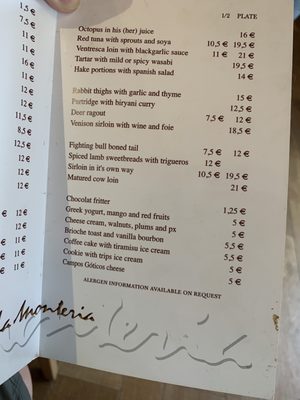 1,5 €
7,5 €
11 €
11 €
16 €
11 €
12 €
12 €
11,5 €
8,5 €
12,5 €
12 €
12 €
12 €
€ 12 €
€ 12 €
€ 11 €
€ 11 €
€ 11 €
1/2 PLATE
Octopus in his (her) juice 16 €
Red tuna with sprouts and soya 10,5 € 19,5 €
Ventresca loin with blackgarlic sauce 11 € 21 €
Tartar with mild or spicy wasabi 19,5 €
Hake portions with spanish salad 14 €
Rabbit thighs with garlic and thyme 15 €
Partridge with biryani curry 12,5 €
Deer ragout 7,5 € 12 €
Venison sirloin with wine and foie 18,5 €
Fighting bull boned tail 7,5 € 12 €
Spiced lamb sweetbreads with trigueros 12 €
Sirloin in it's own way 10,5 € 19,5 €
Matured cow loin 21 €
Chocolat fritter 1,25 €
Greek yogurt, mango and red fruits 5 €
Cheese cream, walnuts, plums and px 5 €
Brioche toast and vanilla bourbon 5,5 €
Coffee cake with tiramisu ice cream 5,5 €
Cookie with trips ice cream 5 €
Campos Góticos cheese 5 €
ALERGEN INFORMATION AVAILABLE ON REQUEST
la Montería